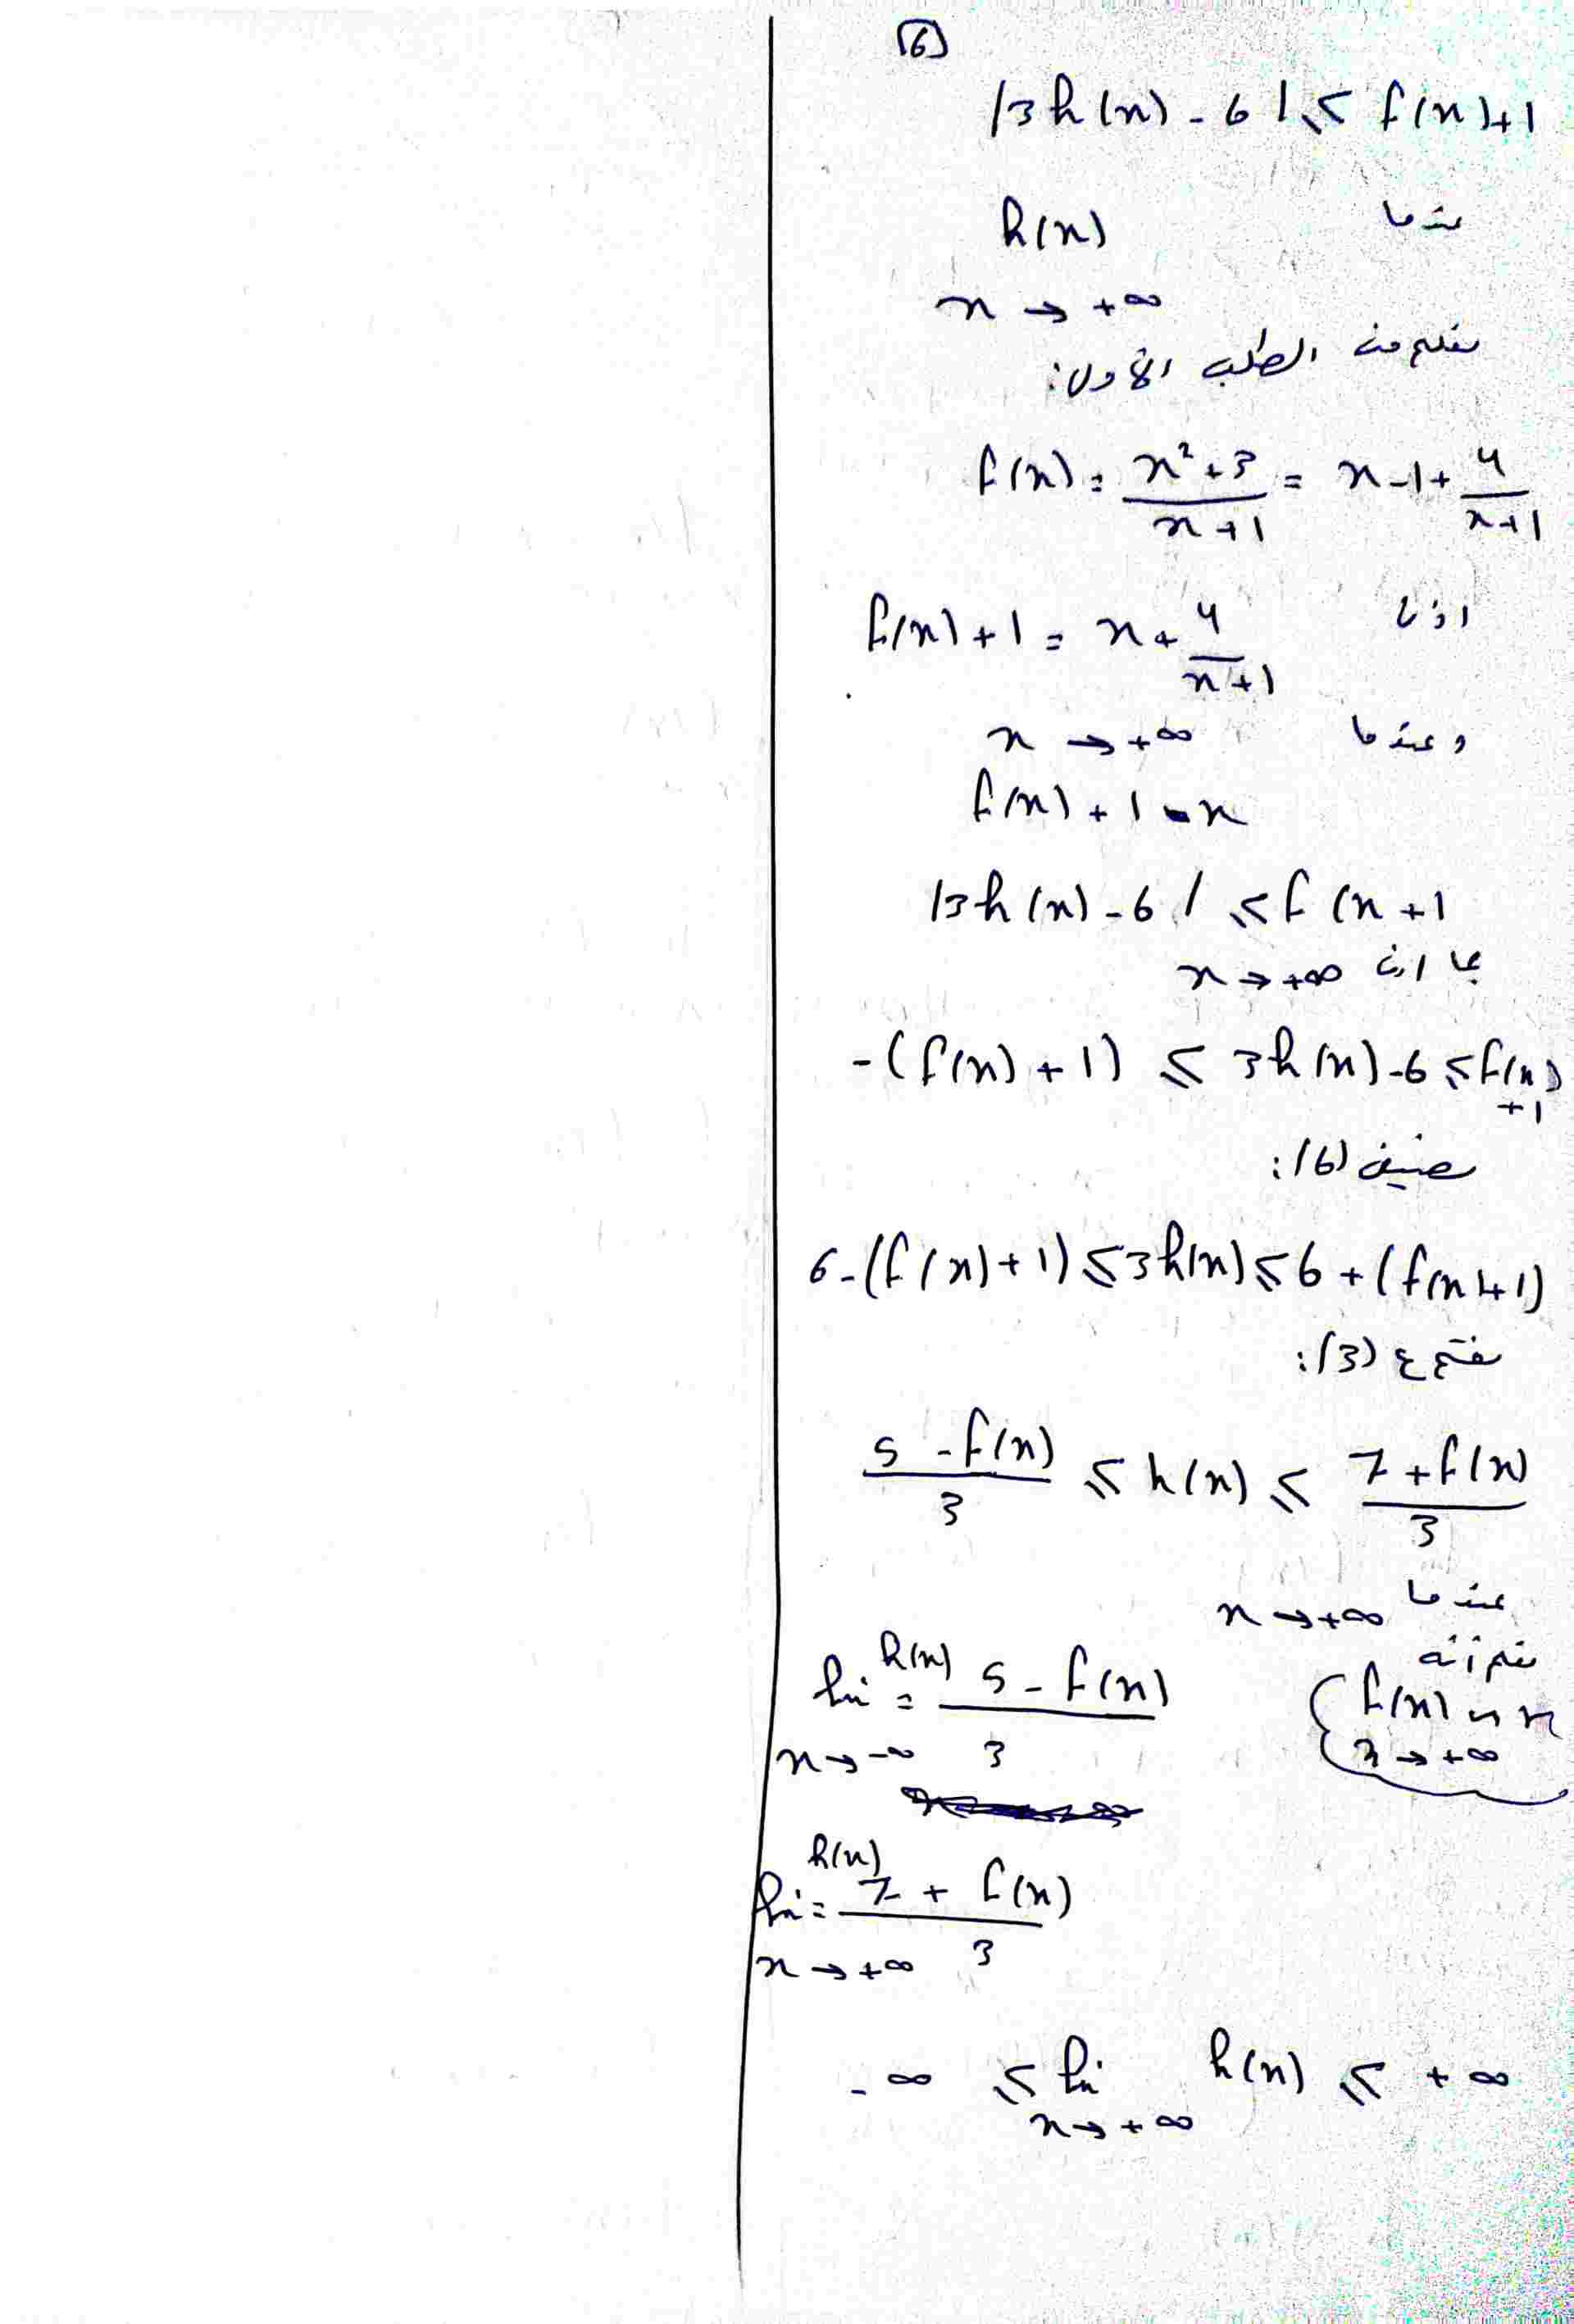 6
|3h(x) - 6| ≤ f(x)+1
عندما h(x)
x → +∞
نعلم من الطلب الأول:
f(x) = \frac{x²+3}{x+1} = x-1+\frac{4}{x+1}
اذن f(x)+1 = x+\frac{4}{x+1}
وعندما x → +∞
f(x) + 1 ~ x
|3h(x) - 6| ≤ f(x +1
بما ان x → +∞
-(f(x) + 1) ≤ 3h(x)-6 ≤ f(x)+1
نضيف (6):
6-(f(x)+1) ≤ 3h(x) ≤ 6 + (f(x)+1)
نقسم ع (3):
\frac{5 - f(x)}{3} ≤ h(x) ≤ \frac{7 + f(x)}{3}
عندما x → +∞
نعلم أنه
f(x) ~ x
x → +∞
lim h(x) = \frac{5 - f(x)}{3}
x → -∞
lim h(x) = \frac{7 + f(x)}{3}
x → +∞
-∞ ≤ lim h(x) ≤ +∞
x → +∞